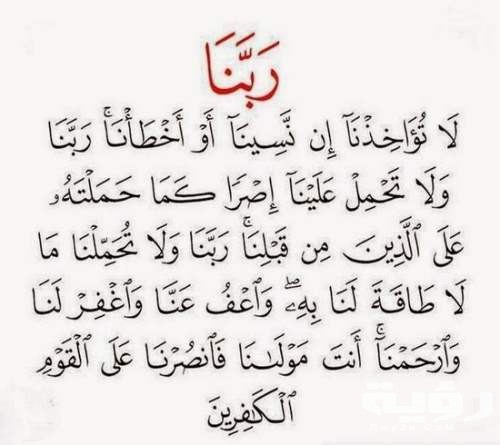 رَبَّنَا
لَا تُؤَاخِذْنَآ إِن نَّسِينَآ أَوْ أَخْطَأْنَا ۚ رَبَّنَا
وَلَا تَحْمِلْ عَلَيْنَآ إِصْرًا كَمَا حَمَلْتَهُۥ
عَلَى ٱلَّذِينَ مِن قَبْلِنَا ۚ رَبَّنَا وَلَا تُحَمِّلْنَا مَا
لَا طَاقَةَ لَنَا بِهِۦ ۖ وَٱعْفُ عَنَّا وَٱغْفِرْ لَنَا
وَٱرْحَمْنَآ ۚ أَنتَ مَوْلَىٰنَا فَٱنصُرْنَا عَلَى ٱلْقَوْمِ
ٱلْكَٰفِرِينَ
رؤية